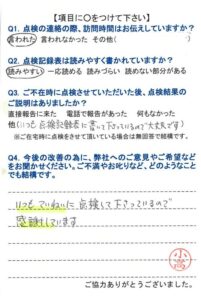 【項目に○をつけて下さい】
Q1. 点検の連絡の際、訪問時間はお伝えしていますか?
言われた 言われなかった その他( )
Q2. 点検記録表は読みやすく書かれていますか?
読みやすい 一応読める 読みづらい 読めない部分がある
Q3. ご不在時に点検させていただいた後、点検結果の
ご説明はありましたか?
直接報告に来た 電話で報告があった 何もなかった
他(いつも点検記録表に書いて下さっているので大丈夫です)
(※ご在宅時に点検をさせて頂いている場合は無回答で結構です。)
Q4. 今後の改善の為に、弊社へのご意見やご希望など
をお聞かせください。ご不満やお叱りなど、どのようなこと
でも結構です。
いつもていねいに点検して下さっているので
感謝しています
小高
ご協力ありがとうございました。